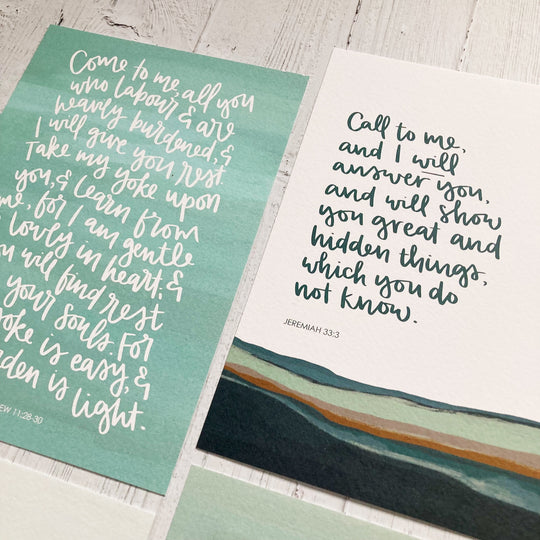 Come to me, all you
who labour & are
heavily burdened, &
I will give you rest.
Take my yoke upon
you, & learn from
me, for I am gentle
lowly in heart, &
ou will find rest
your souls. For
oke is easy, &
den is light.
EW 11:28-30
Call to me,
and I will
answer you,
and will show
you great and
hidden things,
which you do
not know.
JEREMIAH 33:3